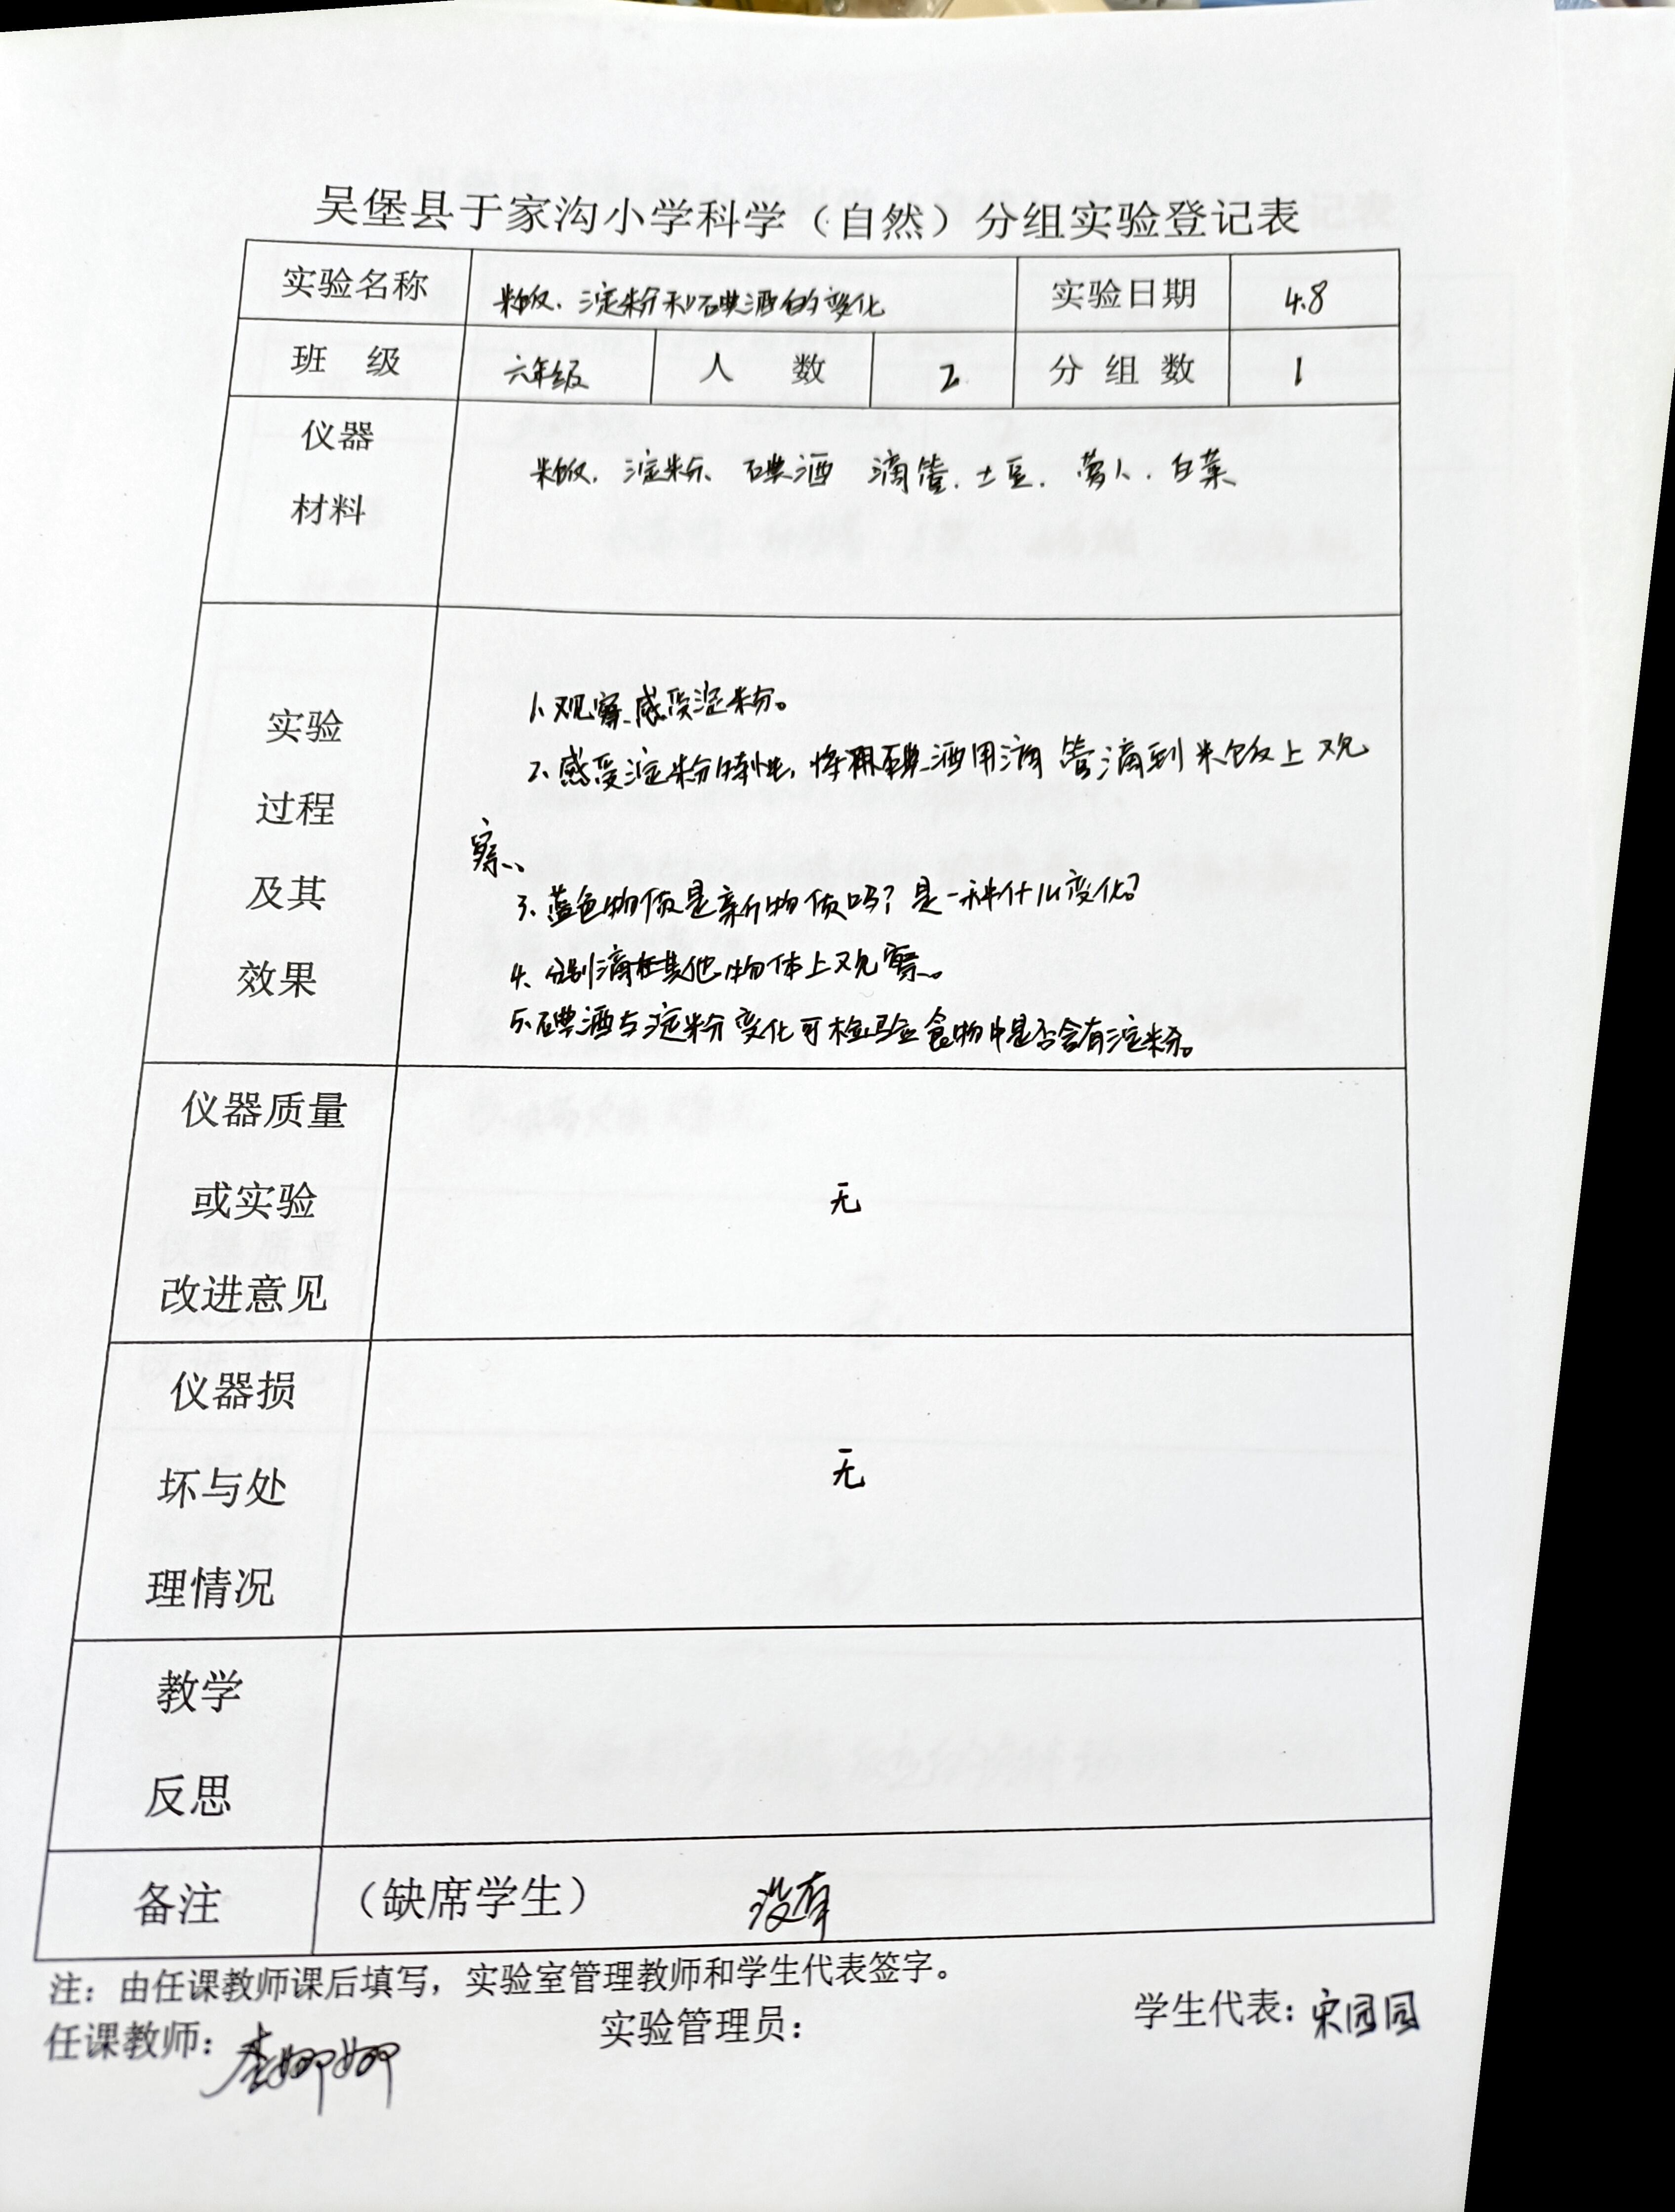 吴堡县于家沟小学科学（自然）分组实验登记表
实验名称 米饭、淀粉和碘酒的变化 实验日期 4.8
班 级 六年级 人 数 2 分 组 数 1
仪器
材料
米饭、淀粉、碘酒 滴管、土豆、萝卜、白菜
实验
过程
及其
效果
1、观察、感受淀粉。
2、感受淀粉的特性，将碘酒用滴管滴到米饭上观
察、
3、蓝色物质是新物质吗？是一种什么变化？
4、分别滴在其他物体上观察。
5、碘酒与淀粉变化可检验食物中是否含有淀粉。
仪器质量
或实验
改进意见
无
仪器损
坏与处
理情况
无
教学
反思
备注 （缺席学生） 没有
注：由任课教师课后填写，实验室管理教师和学生代表签字。
任课教师：李娜娜 实验管理员： 学生代表：宋园园